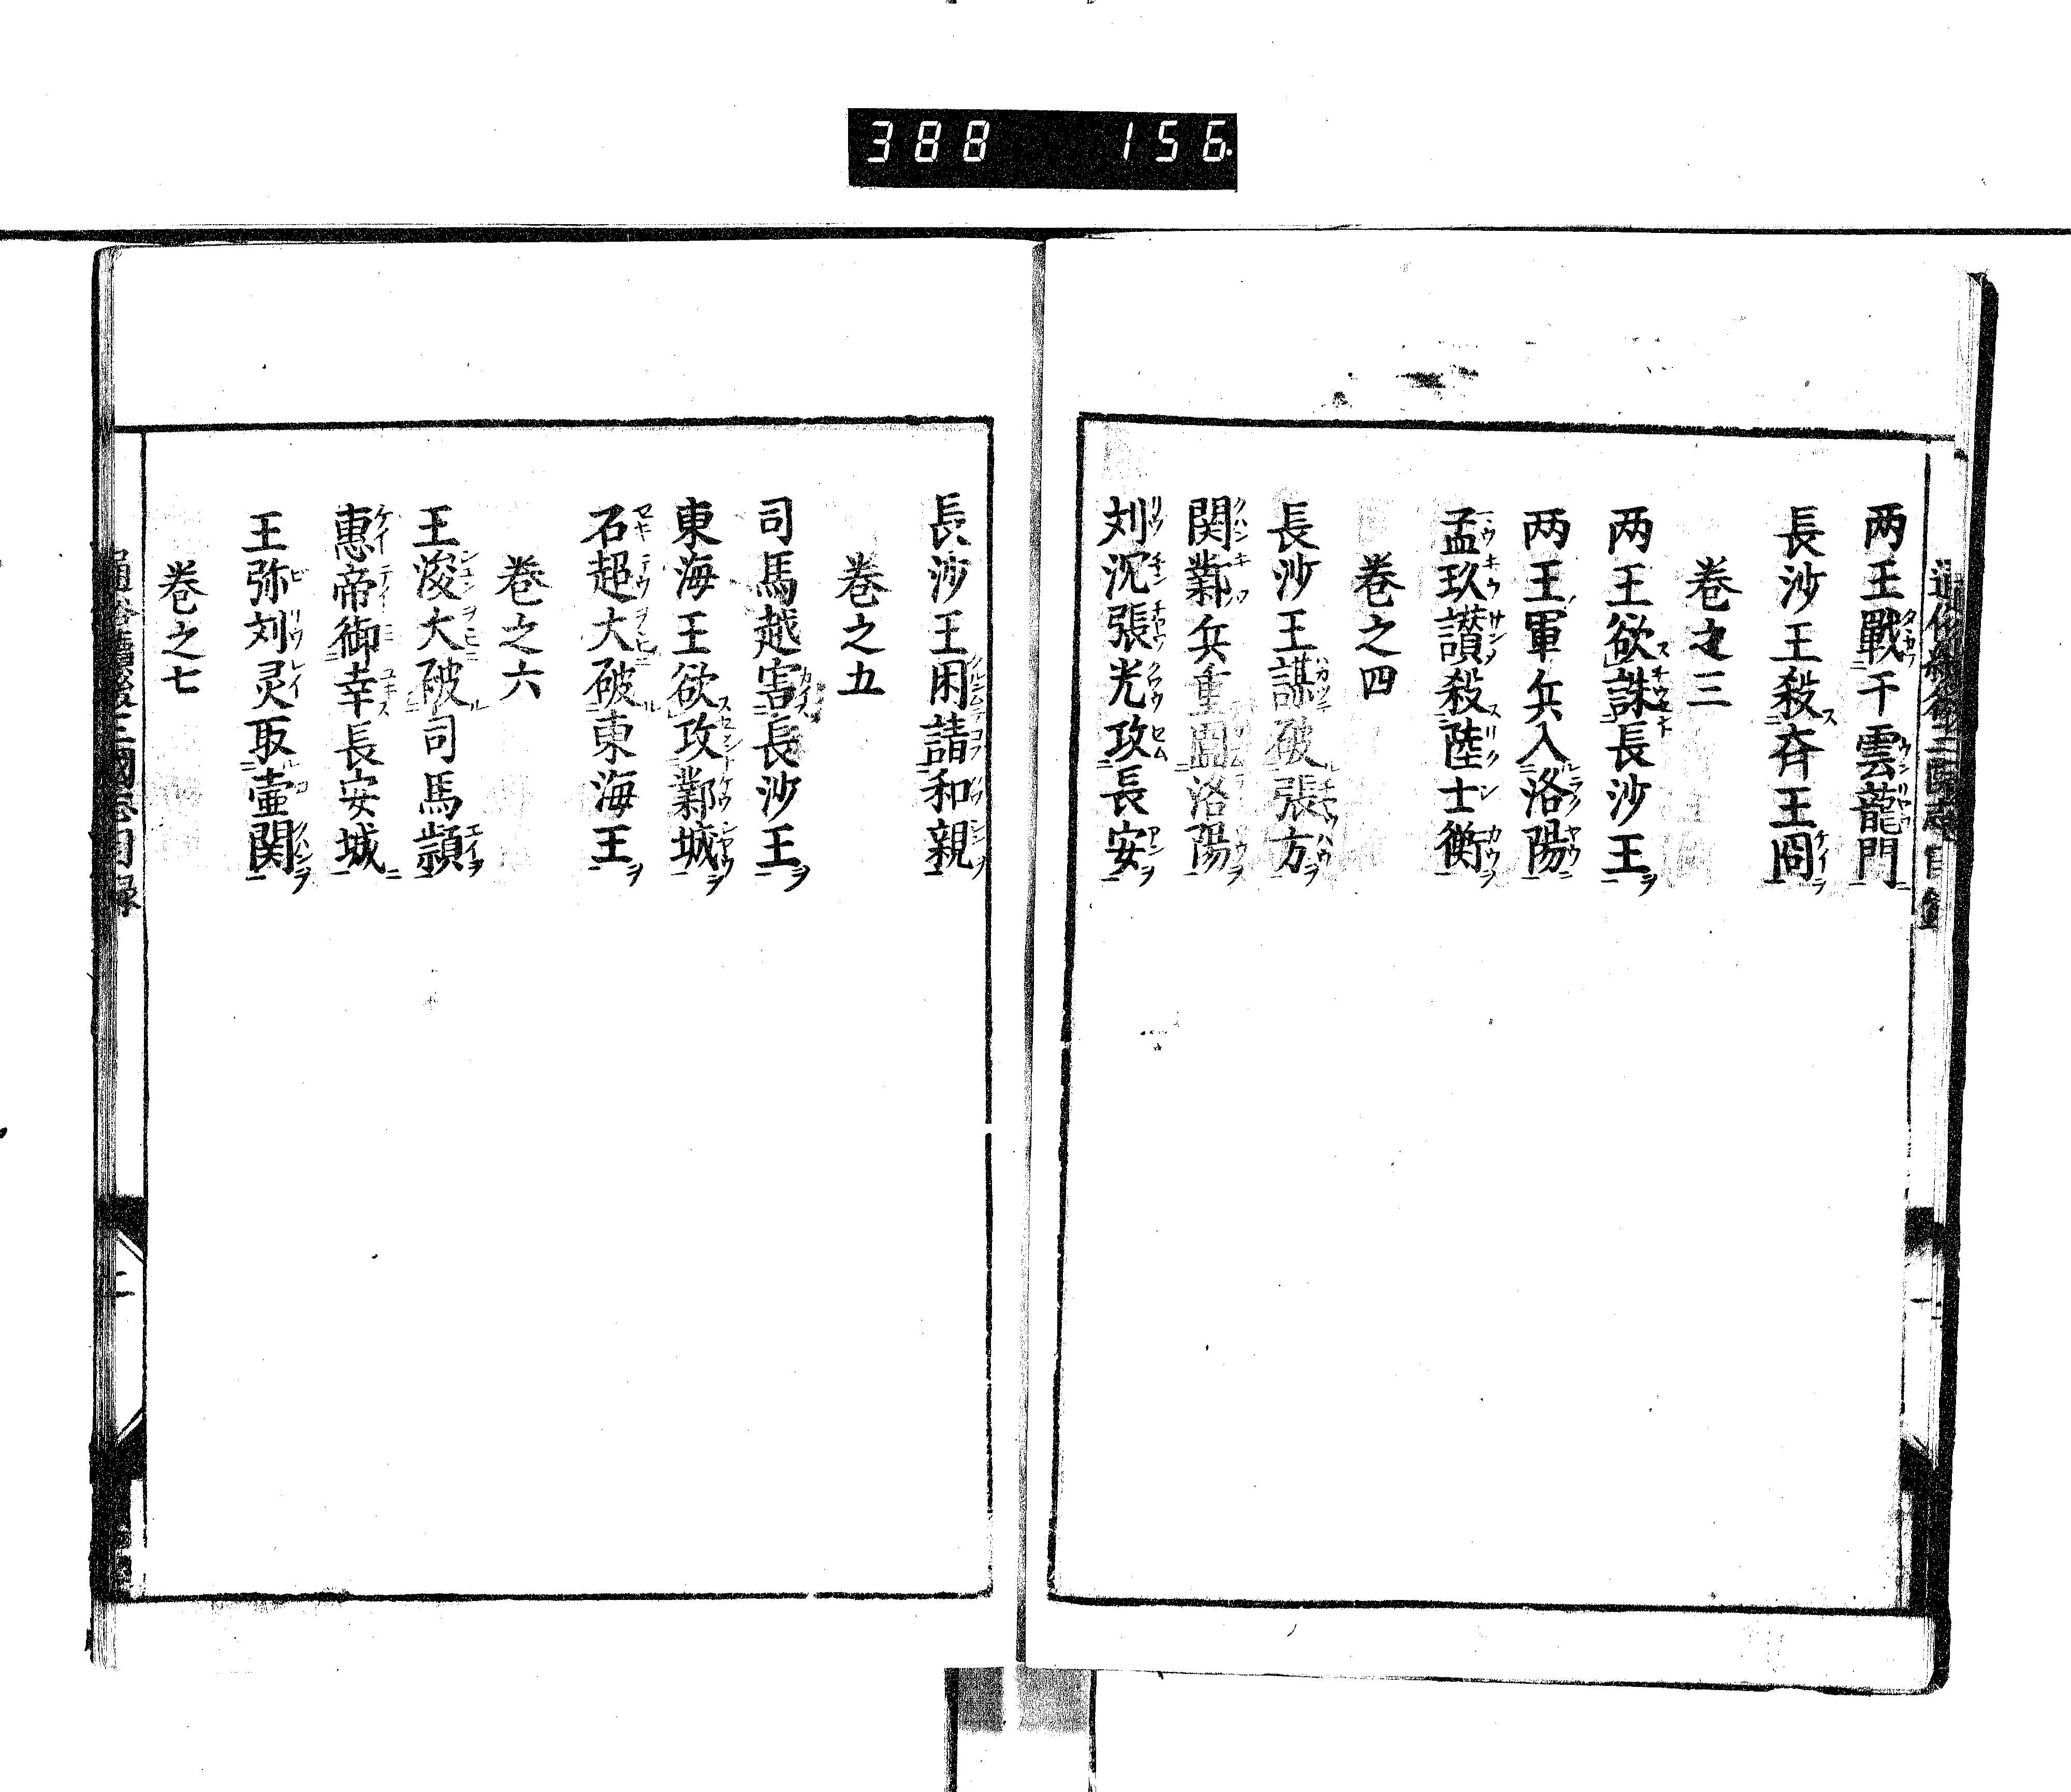 388 156
両王戰于雲龍門
長沙王殺斉王冏
巻之三
両王欲誅長沙王
両王軍兵入洛陽
孟玖讃殺陸士衡
巻之四
長沙王謀破張方
関鄴兵重囲洛陽
刘沉張光攻長安
長沙王困請和親
巻之五
司馬越害長沙王
東海王欲攻鄴城
石超大破東海王
巻之六
王浚大破司馬頴
惠帝御幸長安城
王弥刘灵取壷関
巻之七
通俗續後三國志目録
二